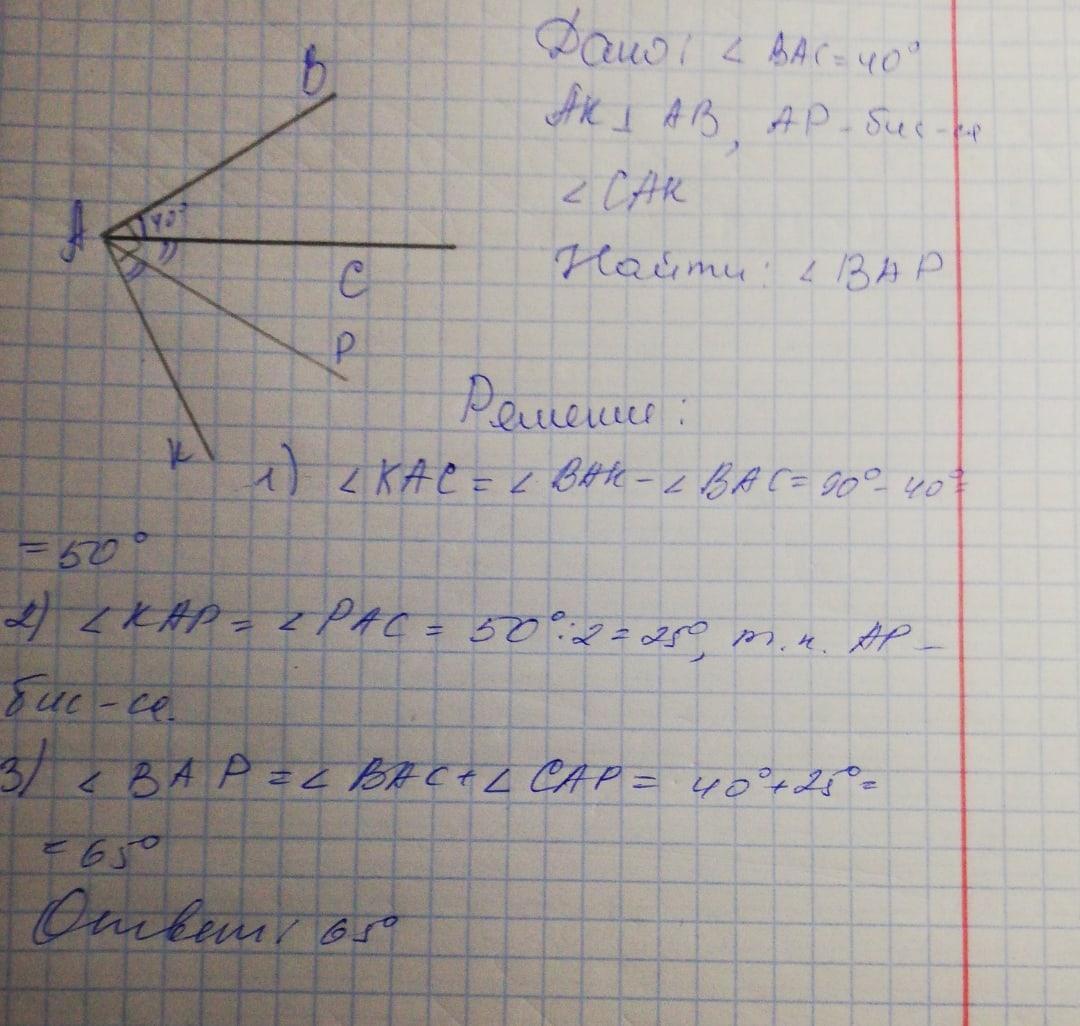 Дано: ∠ BAC = 40°
AK ⊥ AB, AP - бис-са
∠ CAK
Найти: ∠ BAP
B
A
40°
C
P
K
Решение:
1) ∠ KAC = ∠ BAK - ∠ BAC = 90° - 40° =
= 50°
2) ∠ KAP = ∠ PAC = 50° : 2 = 25°, т.к. AP -
бис-са.
3) ∠ BAP = ∠ BAC + ∠ CAP = 40° + 25° =
= 65°
Ответ: 65°